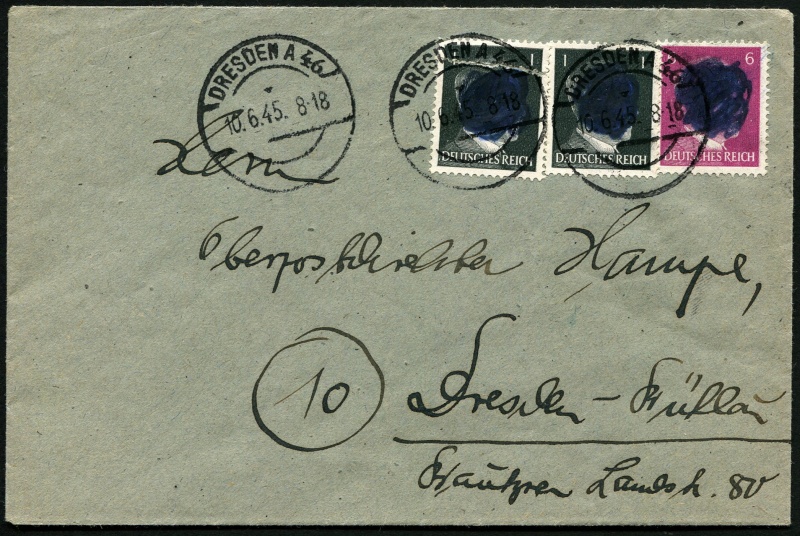 DRESDEN A 46
10.6.45. 8-18
DRESDEN A 46
10.6.45 8-18
DRESDEN A 46
10.6.45. 8-18
1
DEUTSCHES REICH
1 1
DEUTSCHES REICH
6
DEUTSCHES REICH
Herrn
Oberpostdirektor Hampe,
10
Dresden-
Bautzner Landstr. 80